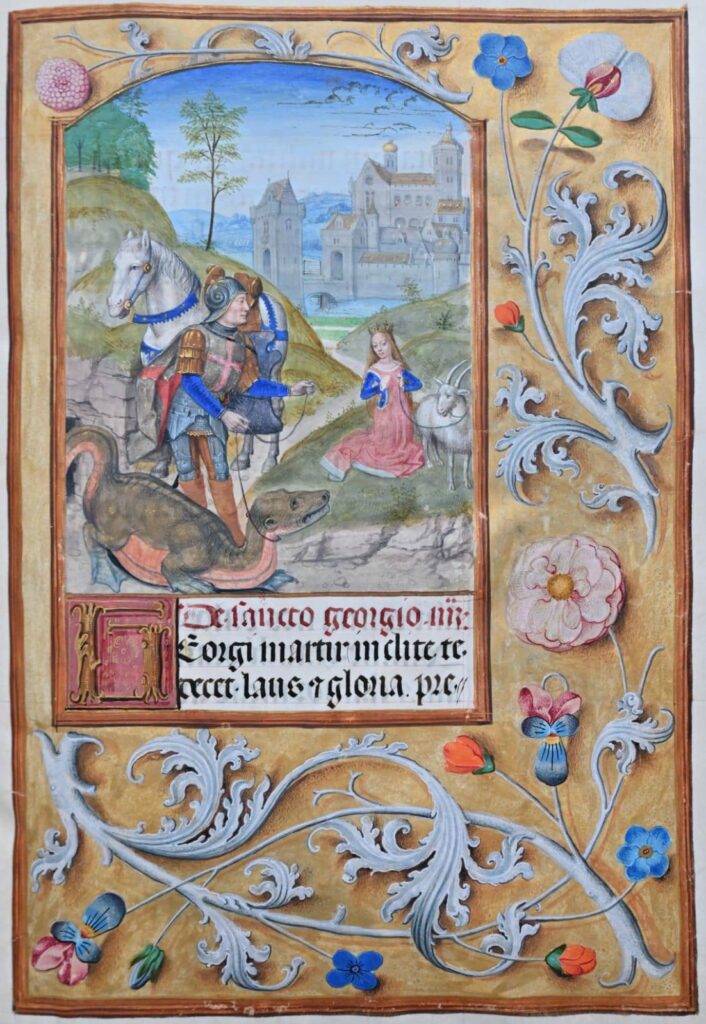 De·sancto georgio
GEorgi martir inclite te-
decet·laus ⁊ gloria. pre-